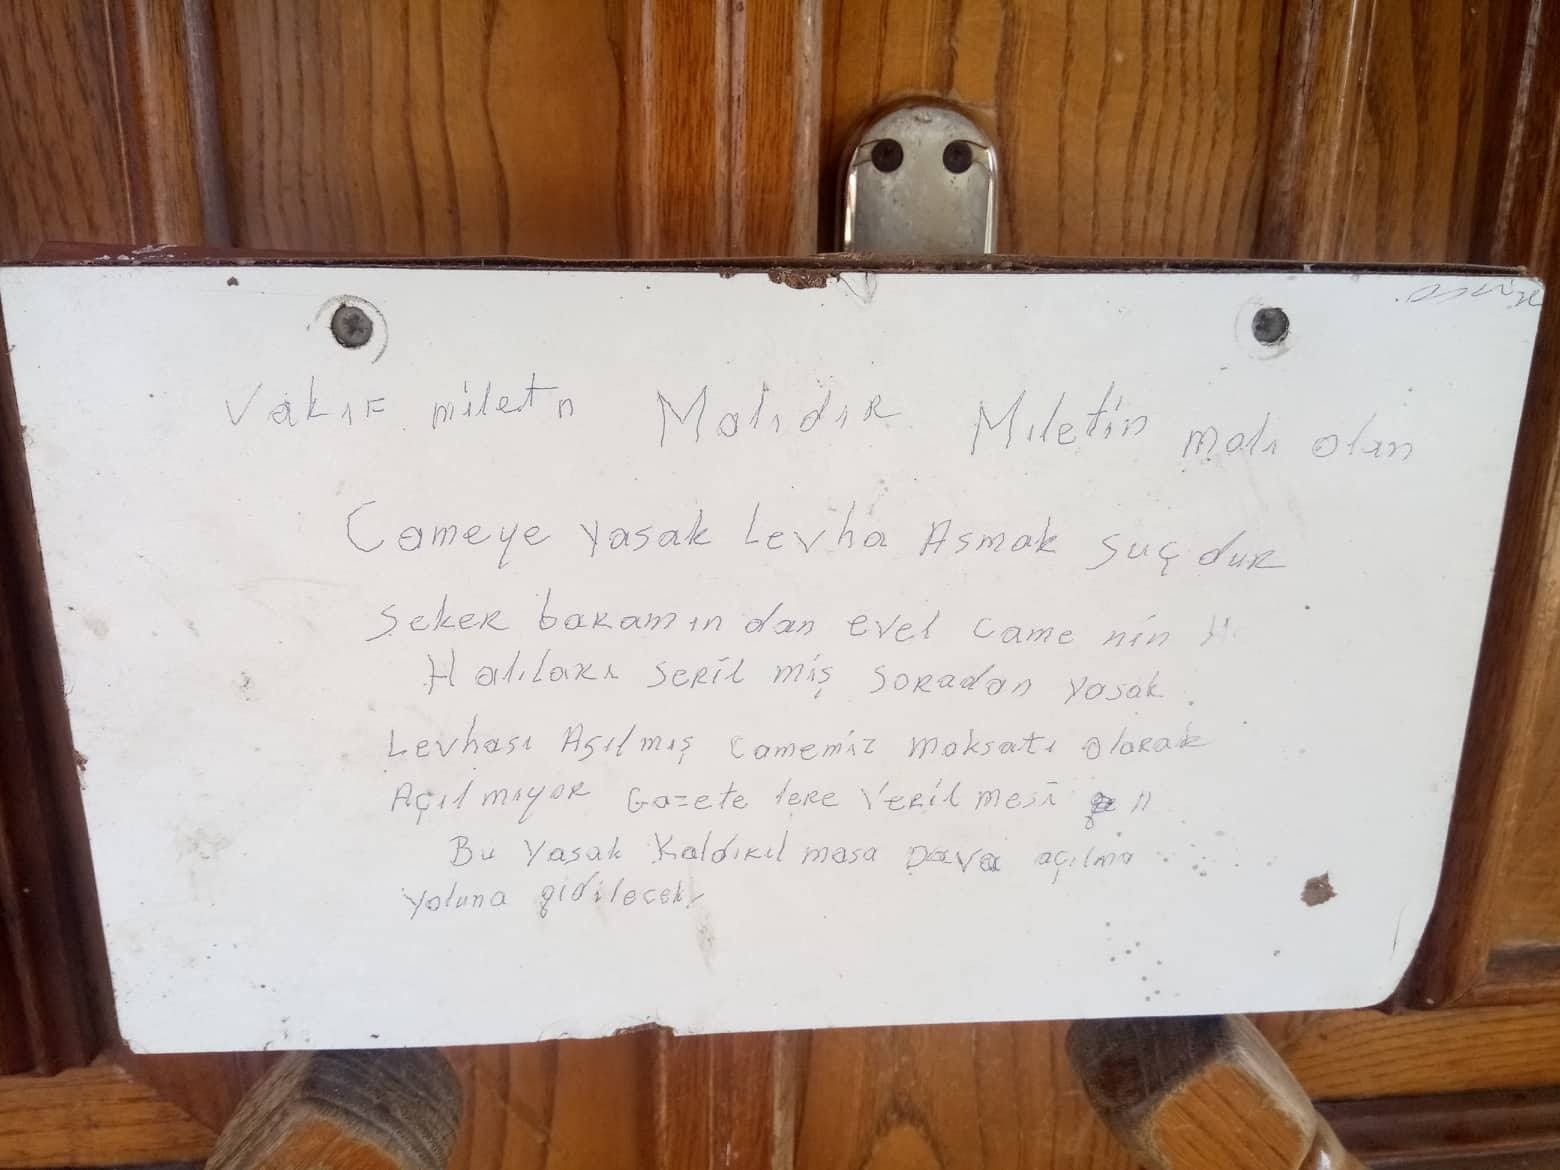 Vakıf miletn Malıdır Mıletin malı olan
Cameye yasak Levha Asmak suçdur
şeker baramın dan evel came nin
Halıları seril miş soradan yasak
Levhası Aşılmış camemiz maksatı olarak
Açılmıyor Gazete lere Veril mesi
Bu yasak Kaldırıl masa Dava açılma
yoluna gidilecek